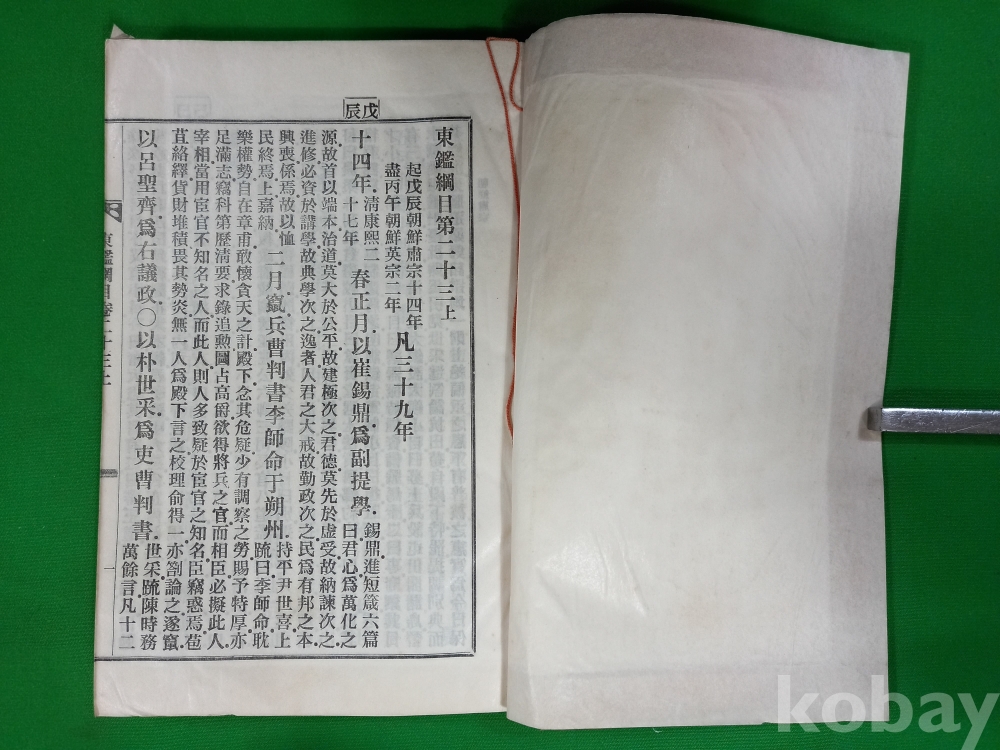 戊辰
東鑑綱目第二十三上
起戊辰朝鮮肅宗十四年
盡丙午朝鮮英宗二年
凡三十九年
十四年
清康熙二
十七年
春正月以崔錫鼎爲副提學
錫鼎進短箴六篇
曰君心爲萬化之
源故首以端本治道莫大於公平故建極次之君德莫先於虛受故納諫次之
進修必資於講學故典學次之逸者人君之大戒故勤政次之民爲有邦之本
興喪係焉故以恤
民終焉上嘉納
二月竄兵曹判書李師命于朔州
持平尹世喜上
䟽曰李師命耽
樂權勢自在章甫敢懷貪天之計殿下念其危疑少有調察之勞賜予特厚亦
足滿志竊科第歷淸要求錄追勲圖占高爵欲得將兵之官而相臣必擬此人
宰相當用宦官不知名之人而此人則人多致疑於宦官之知名臣竊惑焉苞
苴絡繹貨財堆積畏其勢炎無一人爲殿下言之校理俞得一亦劄論之遂竄
以呂聖齊爲右議政○以朴世采爲吏曹判書
世采䟽陳時務
萬餘言凡十二
東鑑綱目卷二十三上
一
kobay